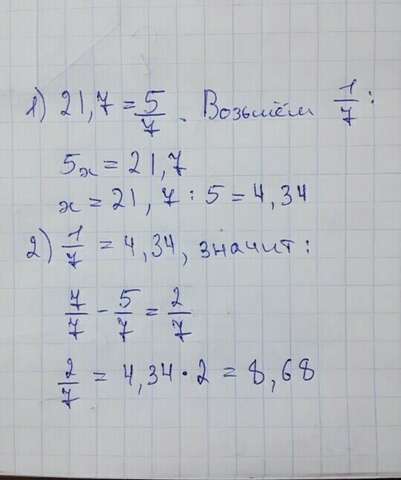 1) 21,7 = 5/7. Возьмём 1/7:
5x = 21,7
x = 21,7 : 5 = 4,34
2) 1/7 = 4,34, значит:
7/7 - 5/7 = 2/7
2/7 = 4,34 · 2 = 8,68